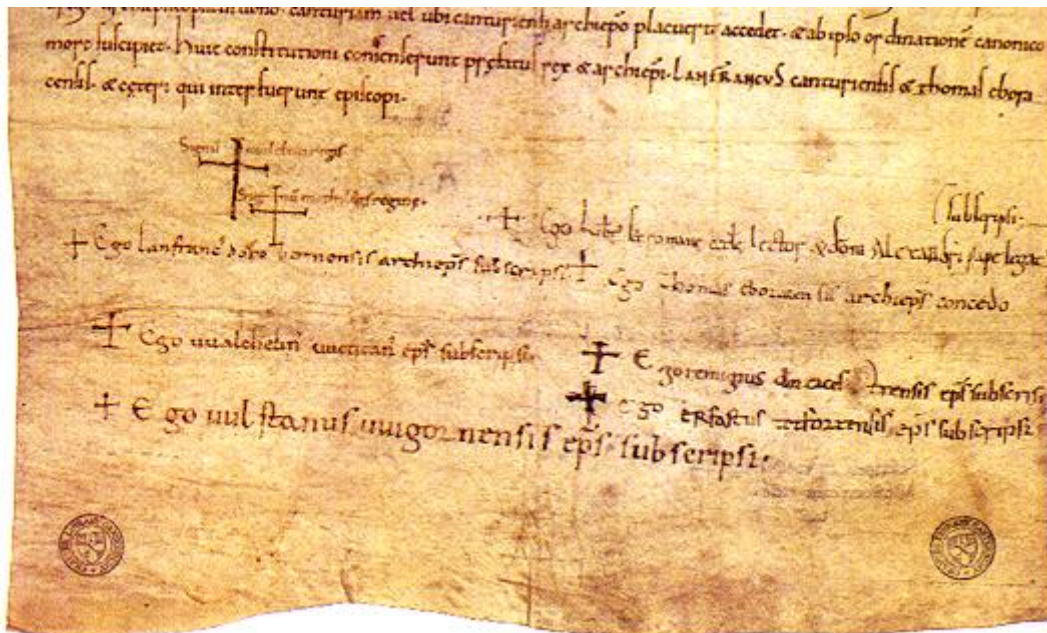 canturiam vel ubi canturienti archiepo placuerit accedet · & ab ipso ordinatione canonico
more suscipiet · huic constitutioni consenserunt prefatus rex & archiepi · LANFRANCUS canturiensis & thomas ebora
censis · & ceteri qui interfuerunt episcopi ·
Signum uuilelmi regis
Signum mathildis regine ·
subscripsi ·
+ Ego romane lector & domini Alexandri pape legat
+ Ego lanfranc doro bornensis archieps subscripsi
+ Ego Thomas eboracensis archieps concedo
+ Ego uualchelin eps subscripsi ·
+ Ego remigius eps subscripsi
+ Ego erfastus eps subscripsi
+ Ego uulstanus uuigornensis eps subscripsi ·